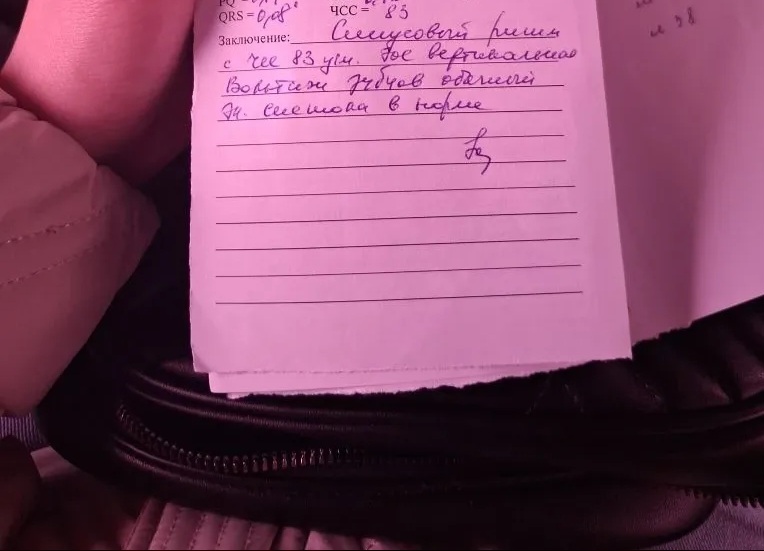 PQ =
QRS = 0,08" ЧСС = 83
Заключение: Синусовый ритм
с чсс 83 уд/м. Гос вертикальное
Вольтаж зубцов обычный
Эл. систола в норме